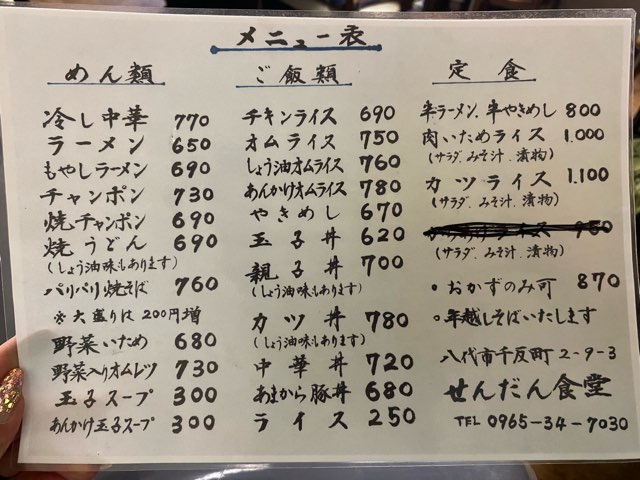 メニュー表
めん類
冷し中華 770
ラーメン 650
もやしラーメン 690
チャンポン 730
焼チャンポン 690
焼うどん 690
(しょう油味もあります)
パリパリ焼そば 760
※大盛りは200円増
野菜いため 680
野菜入りオムレツ 730
玉子スープ 300
あんかけ玉子スープ 300
ご飯類
チキンライス 690
オムライス 750
しょう油オムライス 760
あんかけオムライス 780
やきめし 670
玉子丼 620
親子丼 700
(しょう油味もあります)
カツ丼 780
(しょう油味もあります)
中華丼 720
あまから豚丼 680
ライス 250
定食
半ラーメン、半やきめし 800
肉いためライス 1.000
(サラダ、みそ汁、漬物)
カツライス 1.100
(サラダ、みそ汁、漬物)
(サラダ、みそ汁、漬物)
。おかずのみ可 870
。年越しそばいたします
八代市千反町2-9-3
せんだん食堂
TEL 0965-34-7030